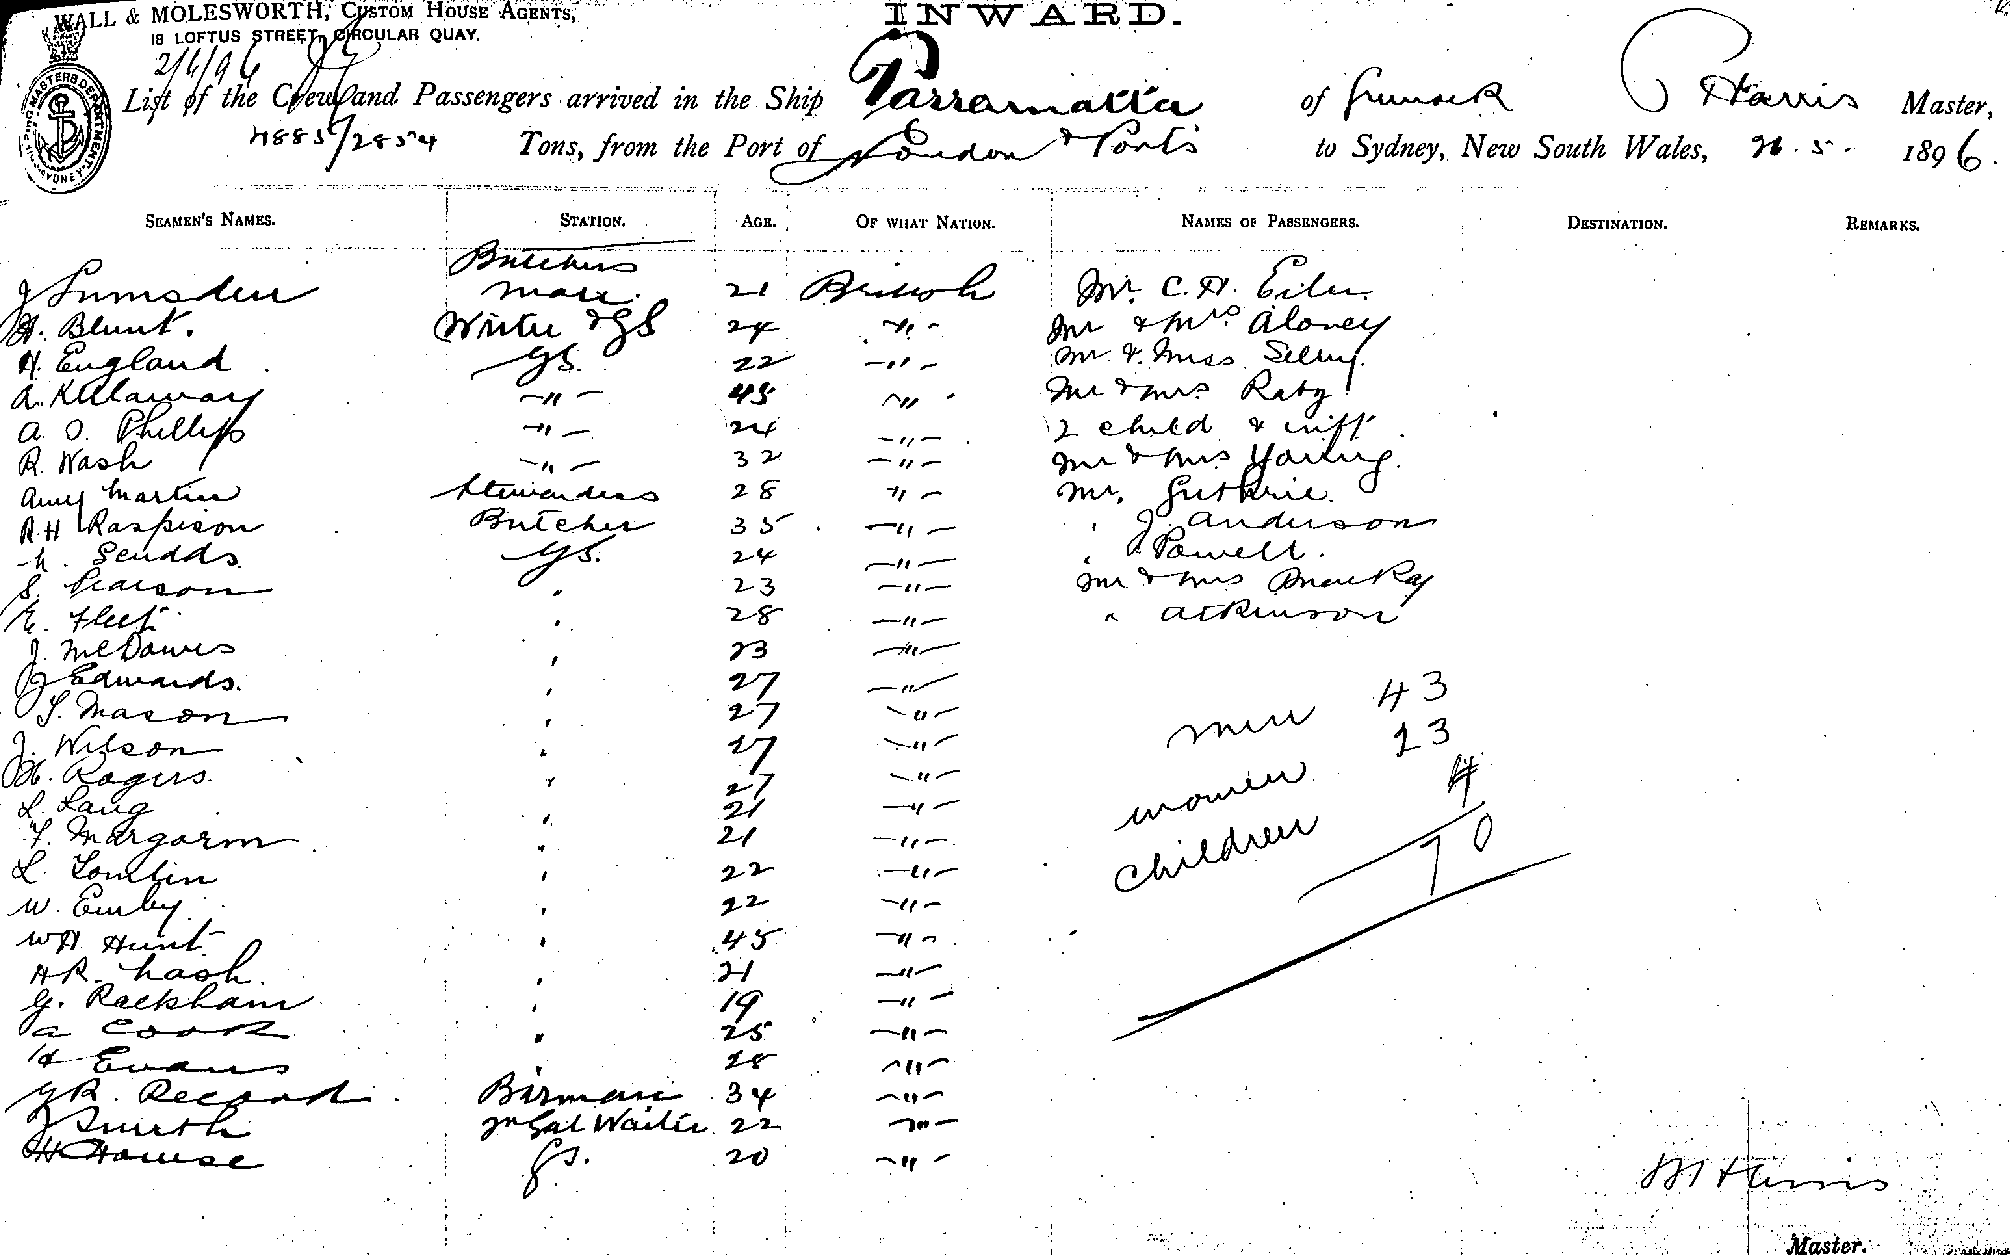 WALL & MOLESWORTH, CUSTOM HOUSE AGENTS,
18 LOFTUS STREET, CIRCULAR QUAY.
INWARD.
2/6/96
List of the Crew and Passengers arrived in the Ship Parramatta of Greenock P Harris Master,
4885/2854 Tons, from the Port of London & Ports to Sydney, New South Wales, 21.5. 1896.
SEAMEN'S NAMES. STATION. AGE. OF WHAT NATION. NAMES OF PASSENGERS. DESTINATION. REMARKS.
J Lumsden Butchers mate. 21 British Mr. C. H.
H. Blunt. Writer & GS 24 " Mr & Mrs
H. England GS. 22 " Mr & Miss
A. Kallaway " 45 " Mr & Mrs Raby
A. O. Phillips " 24 " 2 child & inft
R. Wash " 32 " Mr & Mrs Young.
Amy Martin Stewardess 28 " Mr. Guthrie.
R.H Raspison Butcher 35 " " J. Anderson
Scudds GS. 24 " " Powell.
S. Pearson " 23 " Mr & Mrs MacKay
E. Fleet " 28 " " Atkinson
J. McDawes " 23 "
J Edwards. " 27 "
S. Mason " 27 "
J. Wilson " 27 "
H. Rogers. " 27 "
L. Lang " 21 "
F. Margarm " 21 "
L. Tomlin " 22 "
W. " 22 "
W H Hunt " 45 "
H R. Nash. " 21 "
G. Rackham " 19 "
A Cook " 25 "
H Evans " 28 "
G R. Record Barman 34 "
J Smith Waiter 22 "
H Howse GS. 20 "
men 43
women 23
children 4
70
M Harris
Master.